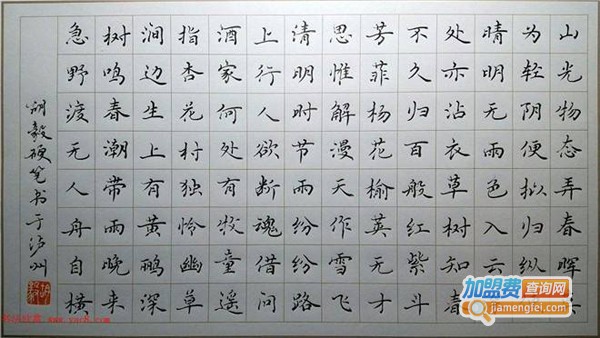 山光物态弄春晖
为轻阴便拟归纵
晴明无雨色入云
处亦沾衣草树知春
不久归百般红紫斗
芳菲杨花榆荚无才
思惟解漫天作雪飞
清明时节雨纷纷路
上行人欲断魂借问
酒家何处有牧童遥
指杏花村独怜幽草
涧边生上有黄鹂深
树鸣春潮带雨晚来
急野渡无人舟自横
胡毅硬笔书于泸州
加盟费查询网
jiamengfei.com